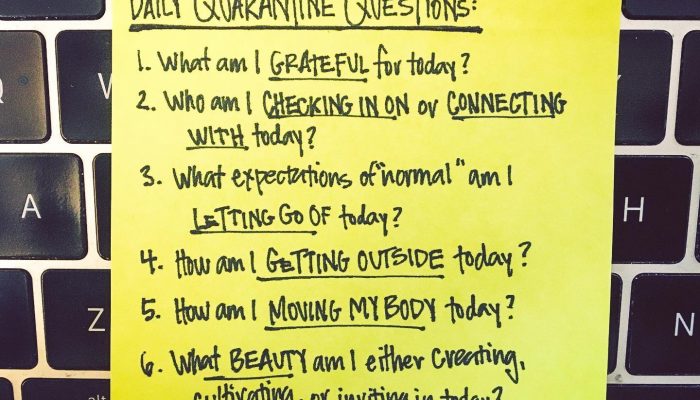 DAILY QUARANTINE QUESTIONS:
1. What am I GRATEFUL for today?
2. Who am I CHECKING IN ON or CONNECTING
WITH today?
3. What expectations of "normal" am I
LETTING GO OF today?
4. How am I GETTING OUTSIDE today?
5. How am I MOVING MY BODY today?
6. What BEAUTY am I either creating,
cultivating, or inviting in today?
Q
W
A
H
Z
N
alt